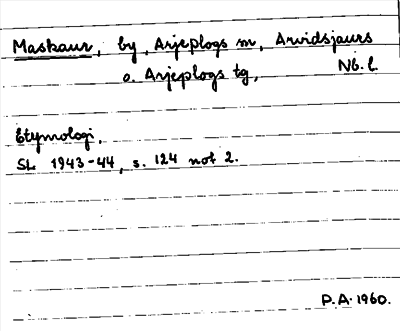 Maskaur, by, Arjeplogs sn, Arvidsjaurs
o. Arjeplogs tg, Nb. l.
Etymologi.
SL 1943-44, s. 124 not 2.
P.A. 1960.